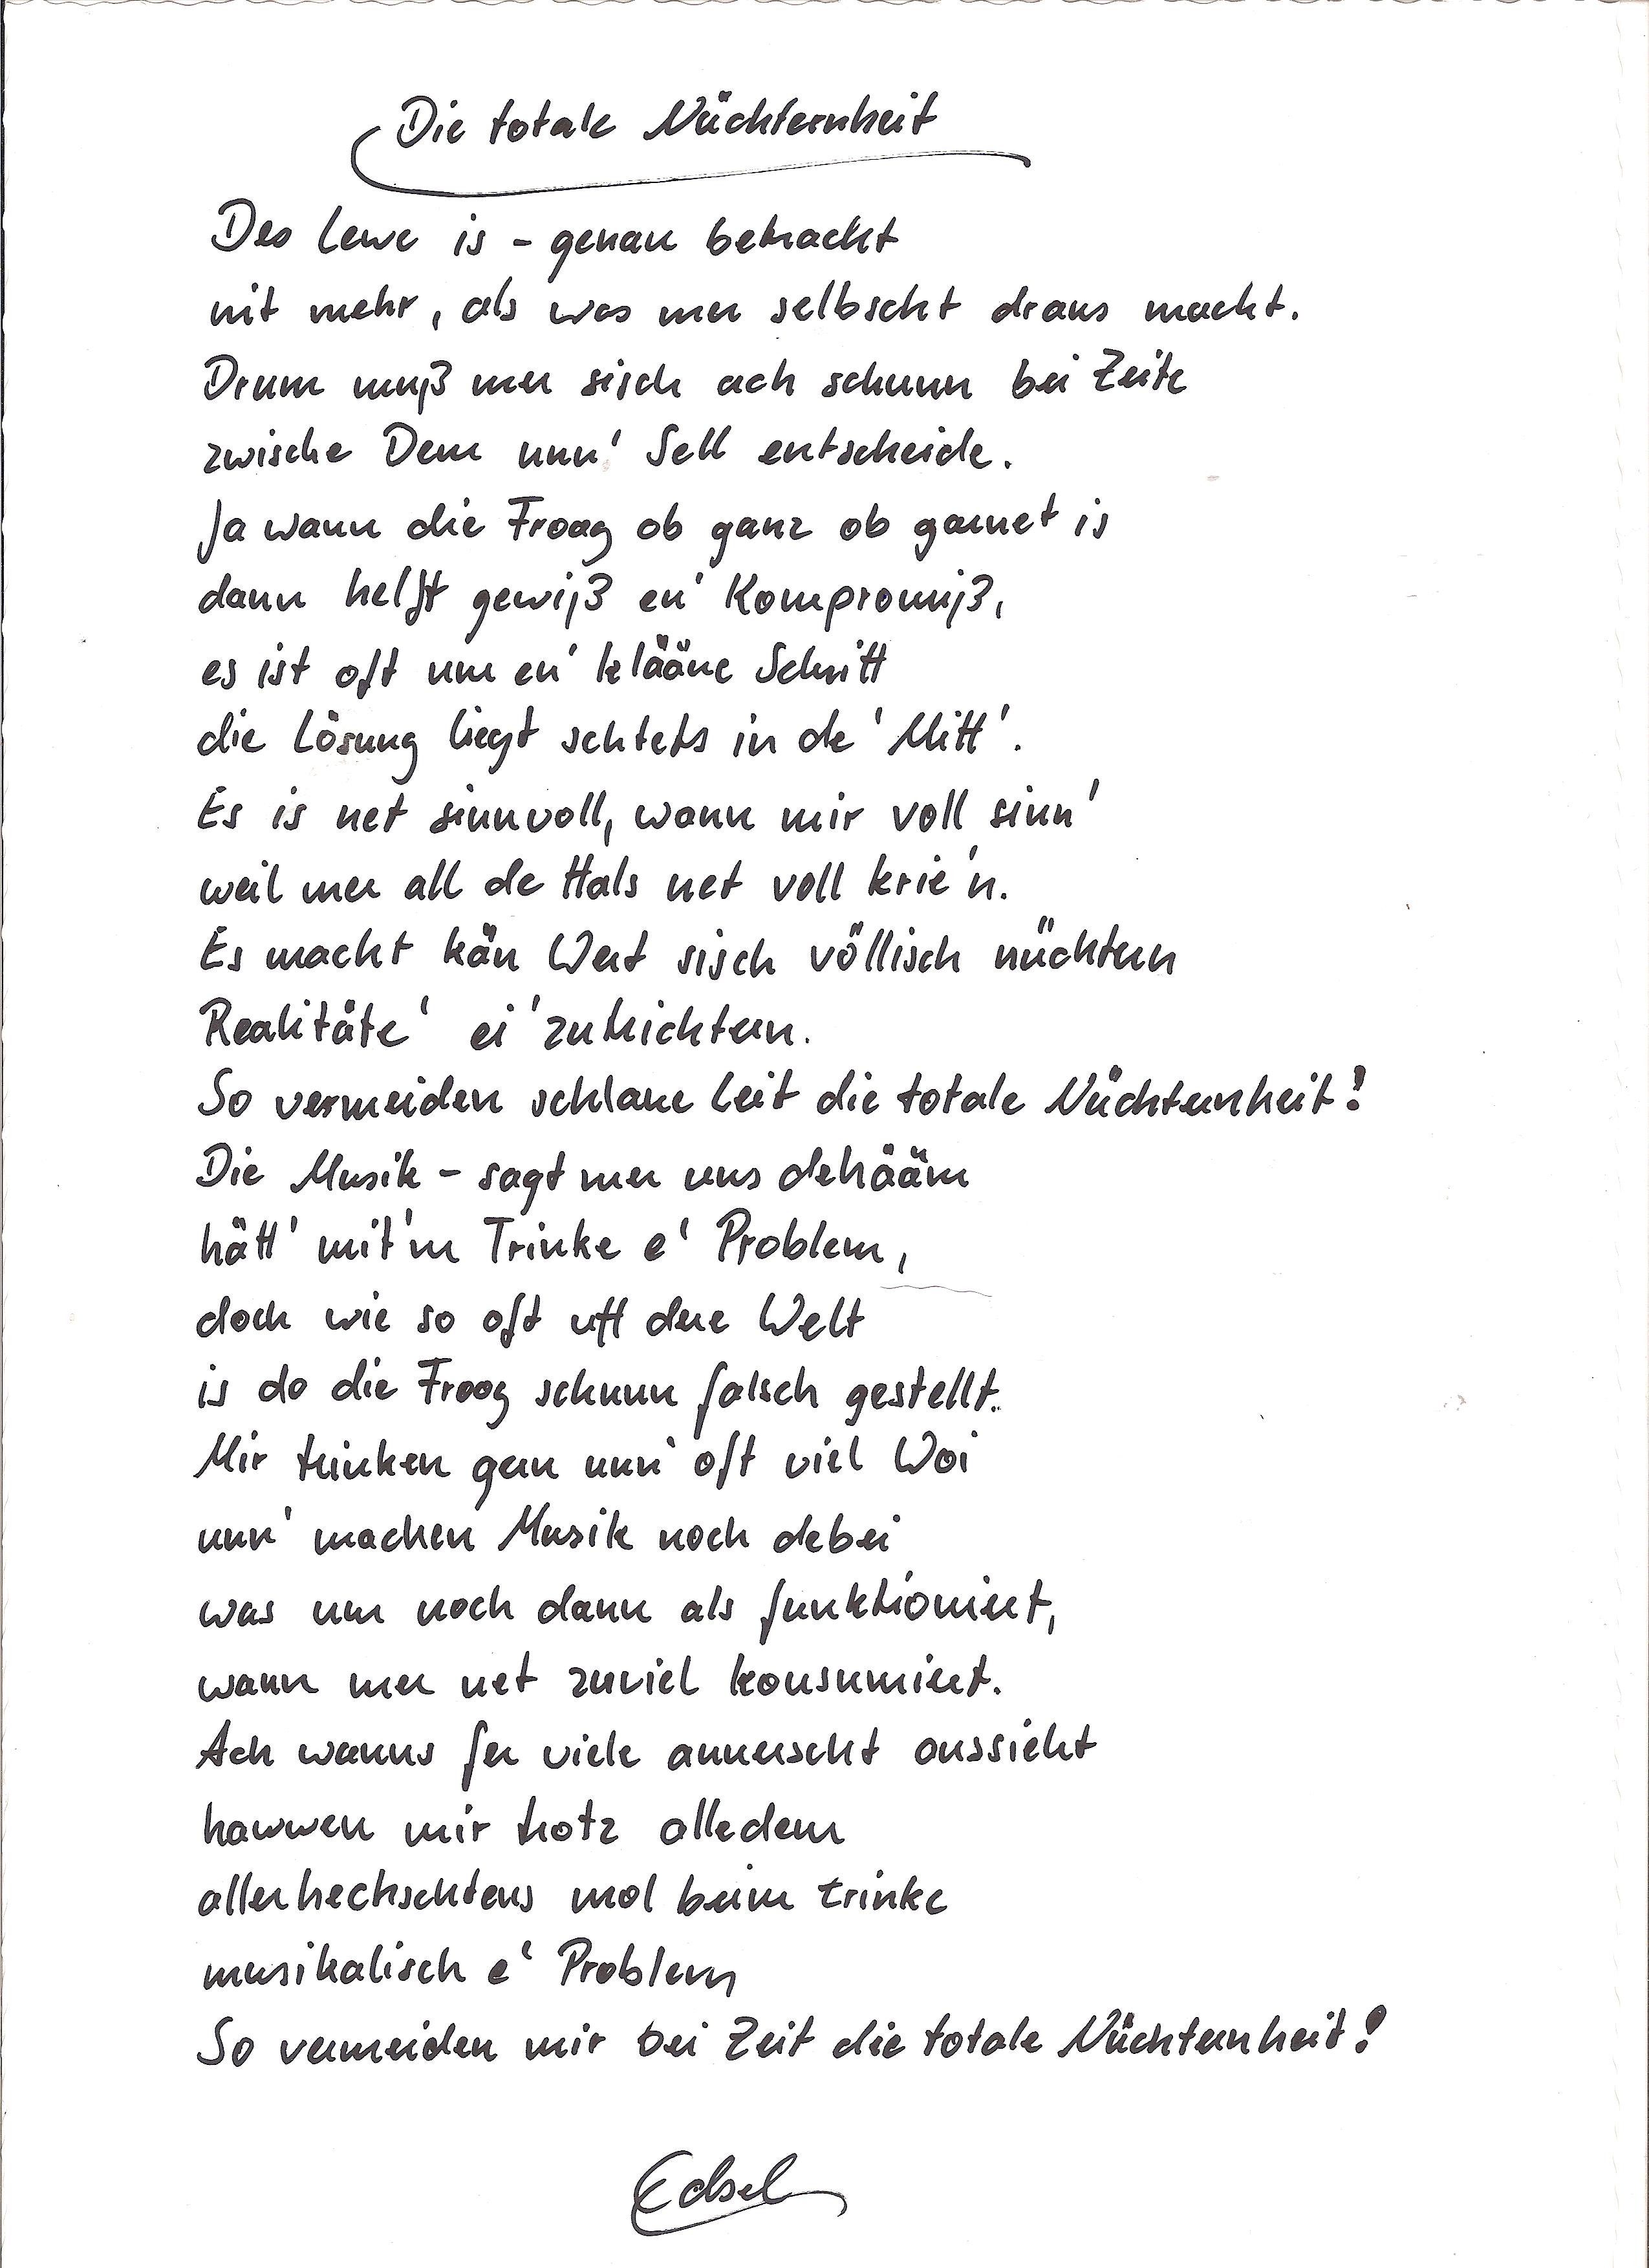 Die totale Nüchternheit
Des Lewe is - genau betracht
nit mehr, als was mer selbscht draus macht.
Drum muß mer sisch ach schunn bei Zeite
zwische Dem unn' Sell entscheide.
Ja wann die Froag ob ganz ob garnet is
dann helft gewiß en' Kompromiß,
es ist oft nur en' klääne Schritt
die Lösung liegt schtets in de' Mitt'.
Es is net sinnvoll, wann mir voll sinn'
weil mer all de Hals net voll krie'n.
Es macht kän Wert sisch völlisch nüchtern
Realitäte' ei'zutrichtern.
So vermeiden schlaue Leit die totale Nüchternheit!
Die Musik - sagt mer uns dehääm
hätt' mit'm Trinke e' Problem,
doch wie so oft uff dere Welt
is do die Froog schunn falsch gestellt.
Mir trinken gern unn' oft viel Woi
unn' machen Musik noch debei
was nur noch dann als funktioniert,
wann mer net zuviel konsumiert.
Ach wanns fer viele annerscht aussieht
hawwen mir trotz alledem
allerhechschtens mol beim trinke
musikalisch e' Problem
So vermeiden mir bei Zeit die totale Nüchternheit!
Edsel